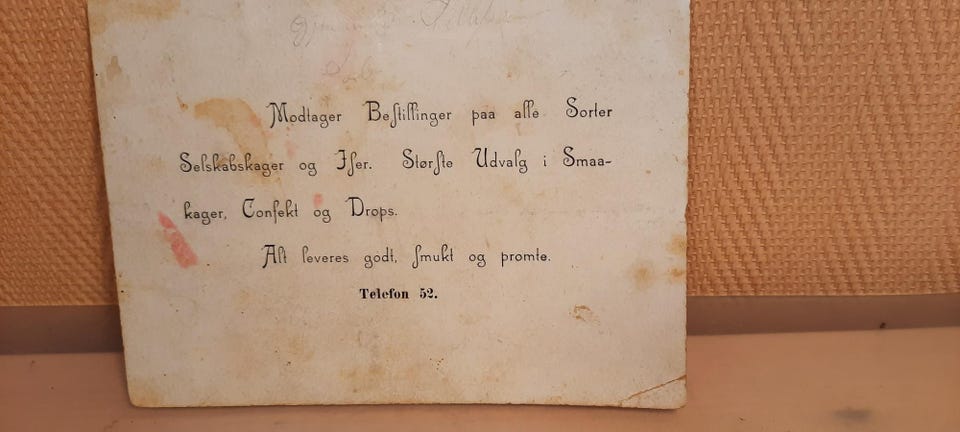 Modtager Bestillinger paa alle Sorter
Selskabskager og Iser. Største Udvalg i Smaa-
kager, Confekt og Drops.
Alt leveres godt, smukt og promte.
Telefon 52.